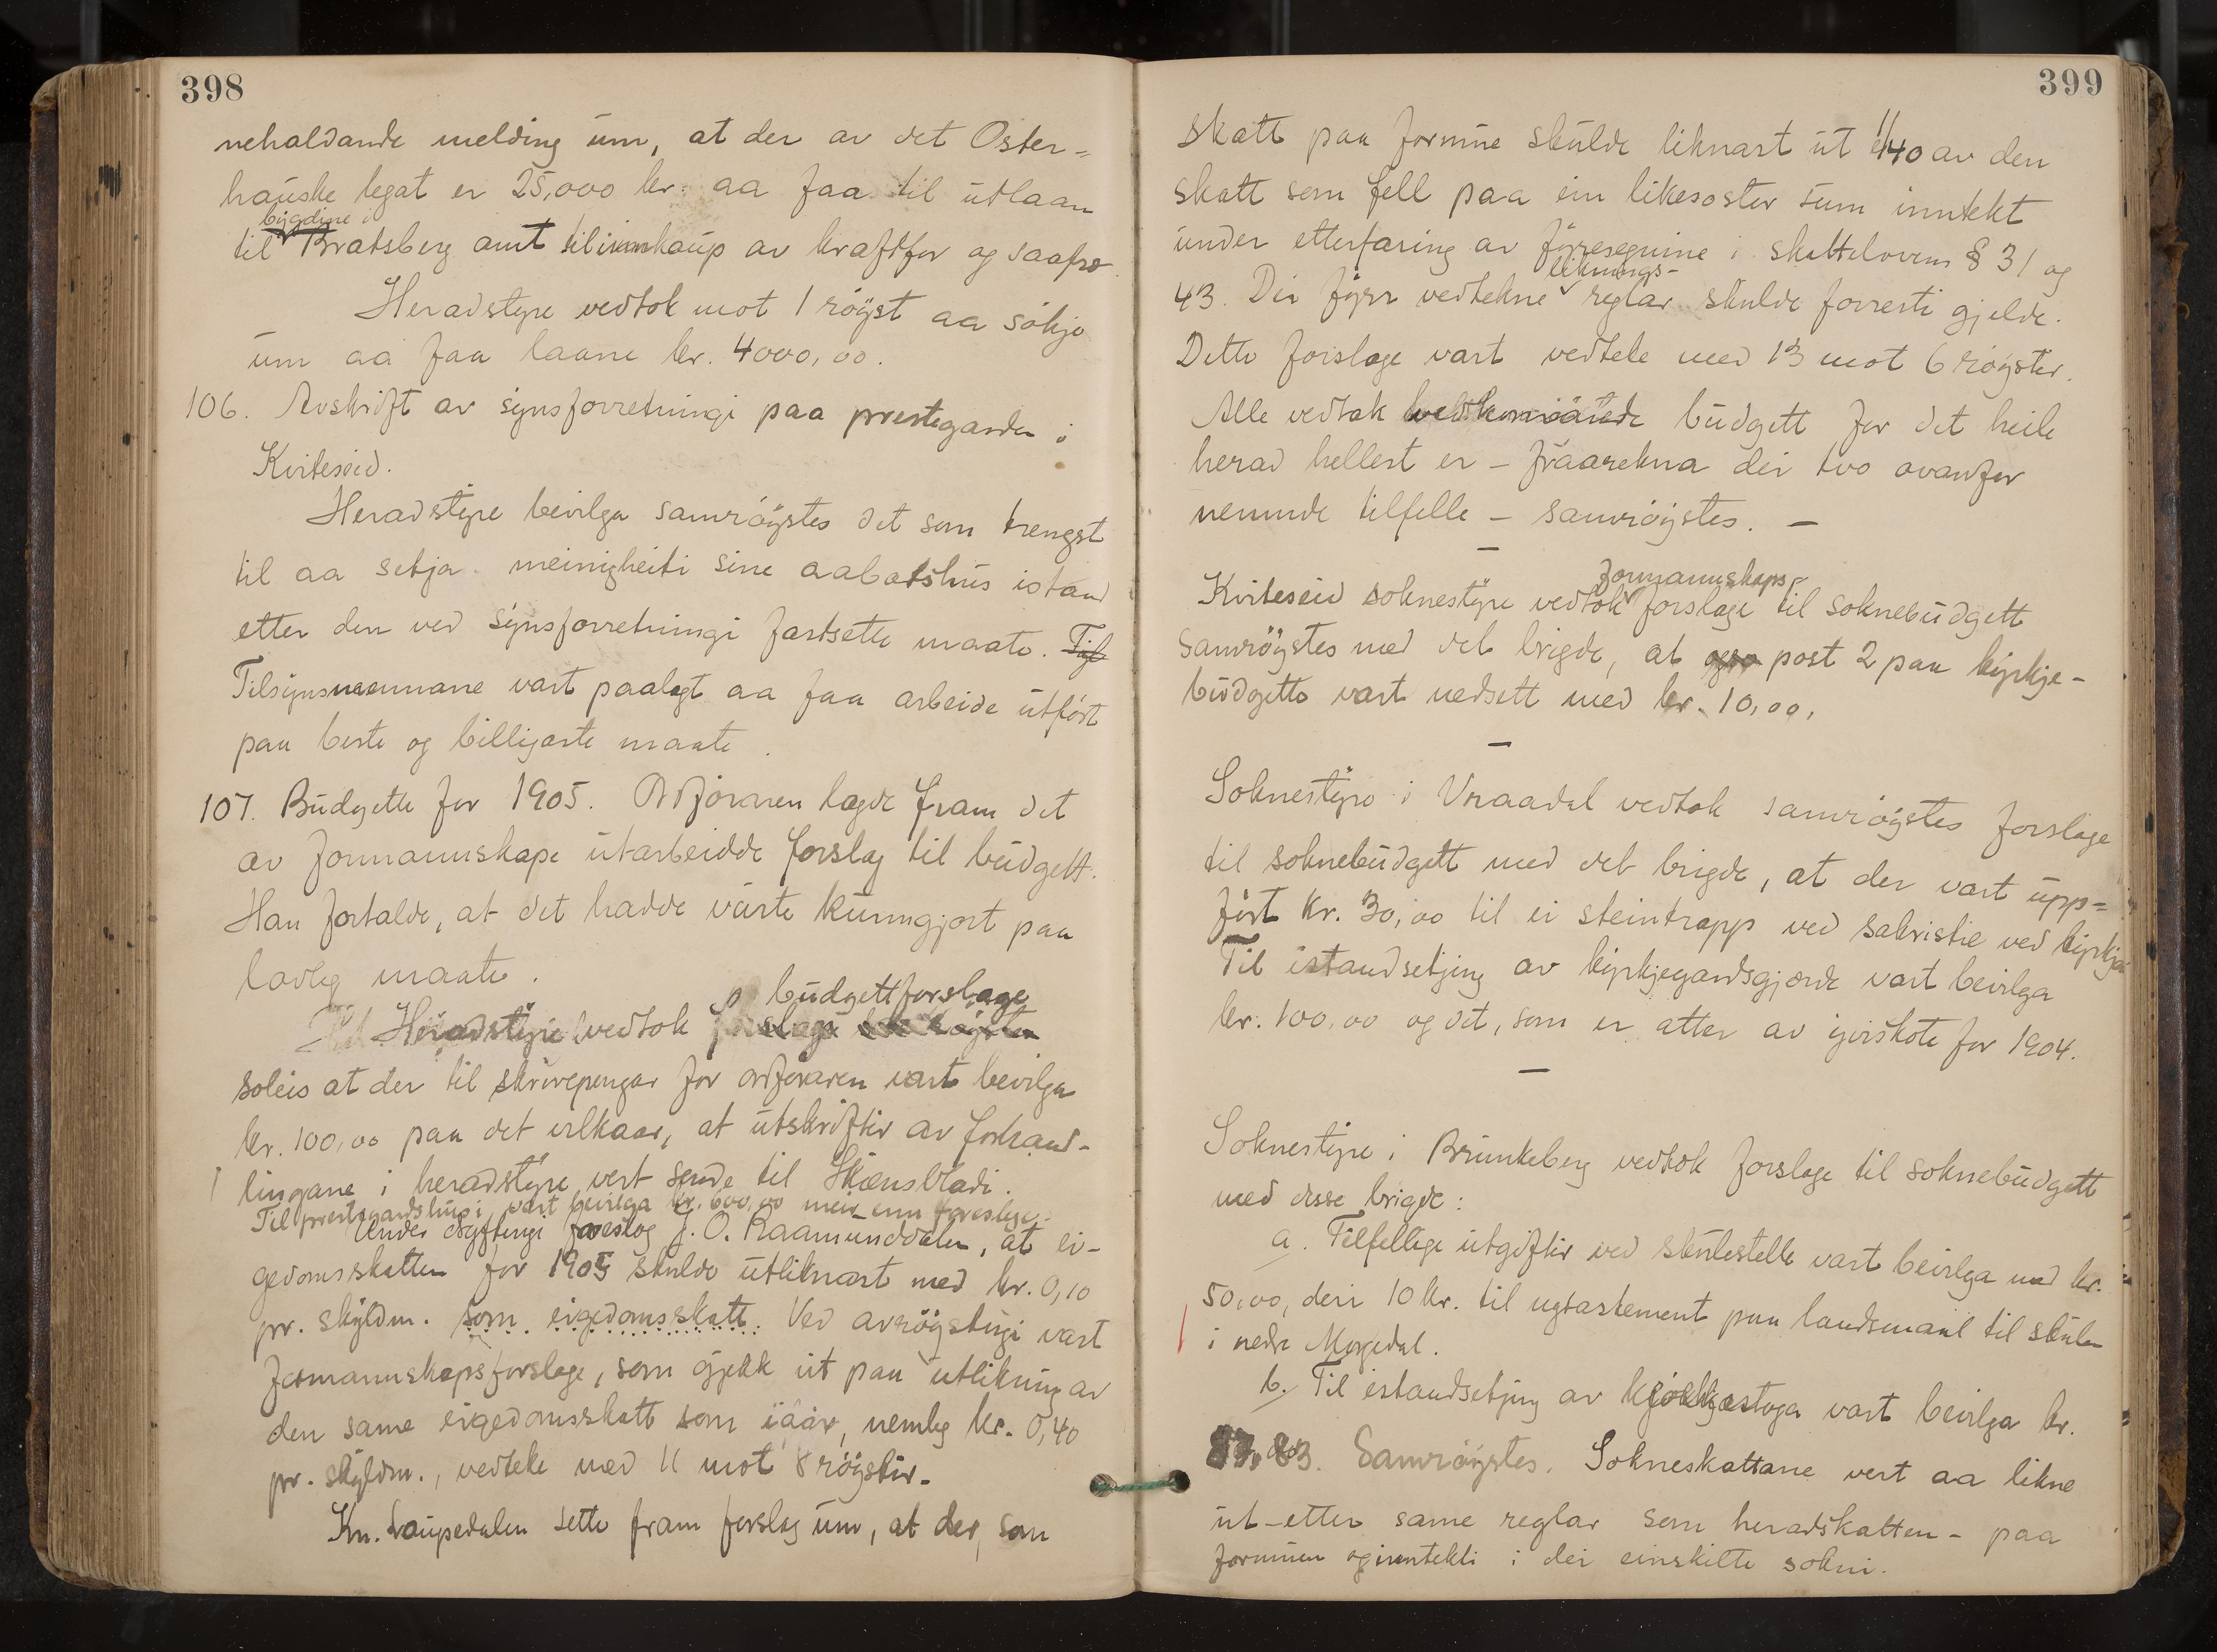 398
nehaldande melding um, at der av det Oster=
hauske legat er 25,000 kr. aa faa til utlaan
bygdine i
til Bratsberg amt til innkaup av kraftfor og saafrø.
Heradstyre vedtok mot 1 røyst aa søkje
um aa faa laane kr. 4000,00.
106. Avskrift av synsforretningi paa prestegarden i
Kviteseid.
Heradstyre bevilga samrøystes det som trengst
til aa setja meinigheiti sine aabotshus istand
etter den ved synsforretningi fastsette maate. Til
Tilsynsmennane vart paalagt aa faa arbeide utført
paa beste og billigaste maate.
107. Budgette for 1905. Ordføraren lagde fram det
av formannskape utarbeidde forslag til budgett.
Han fortalde, at det hadde vorte kunngjort paa
lovleg maate.
budgettforslage
Heradstyre vedtok forslage
soleis at der til skrivepengar for ordføraren vart bevilga
kr. 100,00 paa det vilkaar, at utskrifter av forhand-
lingane i heradstyre vert sende til Skiensbladi.
Til prestegardshusi vart bevilga kr. 600,00 meir enn foreslege.
Under drøftingi foreslog J. O. Raamunddalen, at ei-
gedomsskatten for 1905 skulde utliknast med kr. 0,10
pr. skyldm. som eigedomsskatt. Ved avrøystingi vart
formannskapsforslage, som gjekk ut paa utlikning av
den same eigedomsskatt som iaar, nemleg kr. 0,40
pr. skyldm., vedteke med 11 mot 8 røyster.
Kn. Laupedalen sette fram forslag um, at der, som
399
skatt paa formue skulde liknast ut 1/40 av den
skatt som fell paa ein likesostor sum inntekt
under etterfaring av fyresegnine i skattelovens § 31 og
liknings-
43. Dei fyrr vedtekne reglar skulde forresti gjelde.
Dette forslage vart vedteke med 13 mot 6 røyster.
Alle vedtak vedkomande budgett for det heile
herad hellest er - fraarekna dei tvo ovanfor
nemnde tilfelle - samrøystes. -
formannskaps-
Kviteseid soknestyre vedtok forslage til soknebudgett
samrøystes med det brigde, at post 2 paa kyrkje-
budgette vart nedsett med kr. 10,00.
Soknestyre i Vraadal vedtok samrøystes forslage
til soknebudgett med det brigde, at der vart upp=
ført kr. 30,00 til ei steintrapp ved sakristie ved kyrkja
Til istandsetjing av kyrkjegardsgjerde vart bevilga
kr. 100,00 og det, som er atter av yverskote for 1904.
Soknestyre i Brunkeberg vedtok forslage til soknebudgett
med disse brigde:
a. Tilfellige utgifter ved skulestelle vart bevilga med kr.
50,00, deri 10 kr. til nytastement paa landsmaal til skulen
i nedre Morgedal.
b. Til istandsetjing av kyrkjestoga vart bevilga kr.
83. Samrøystes. Sokneskattane vert aa likne
ut etter same reglar som heradskatten - paa
formuen og inntekti i dei einskilte sokni.